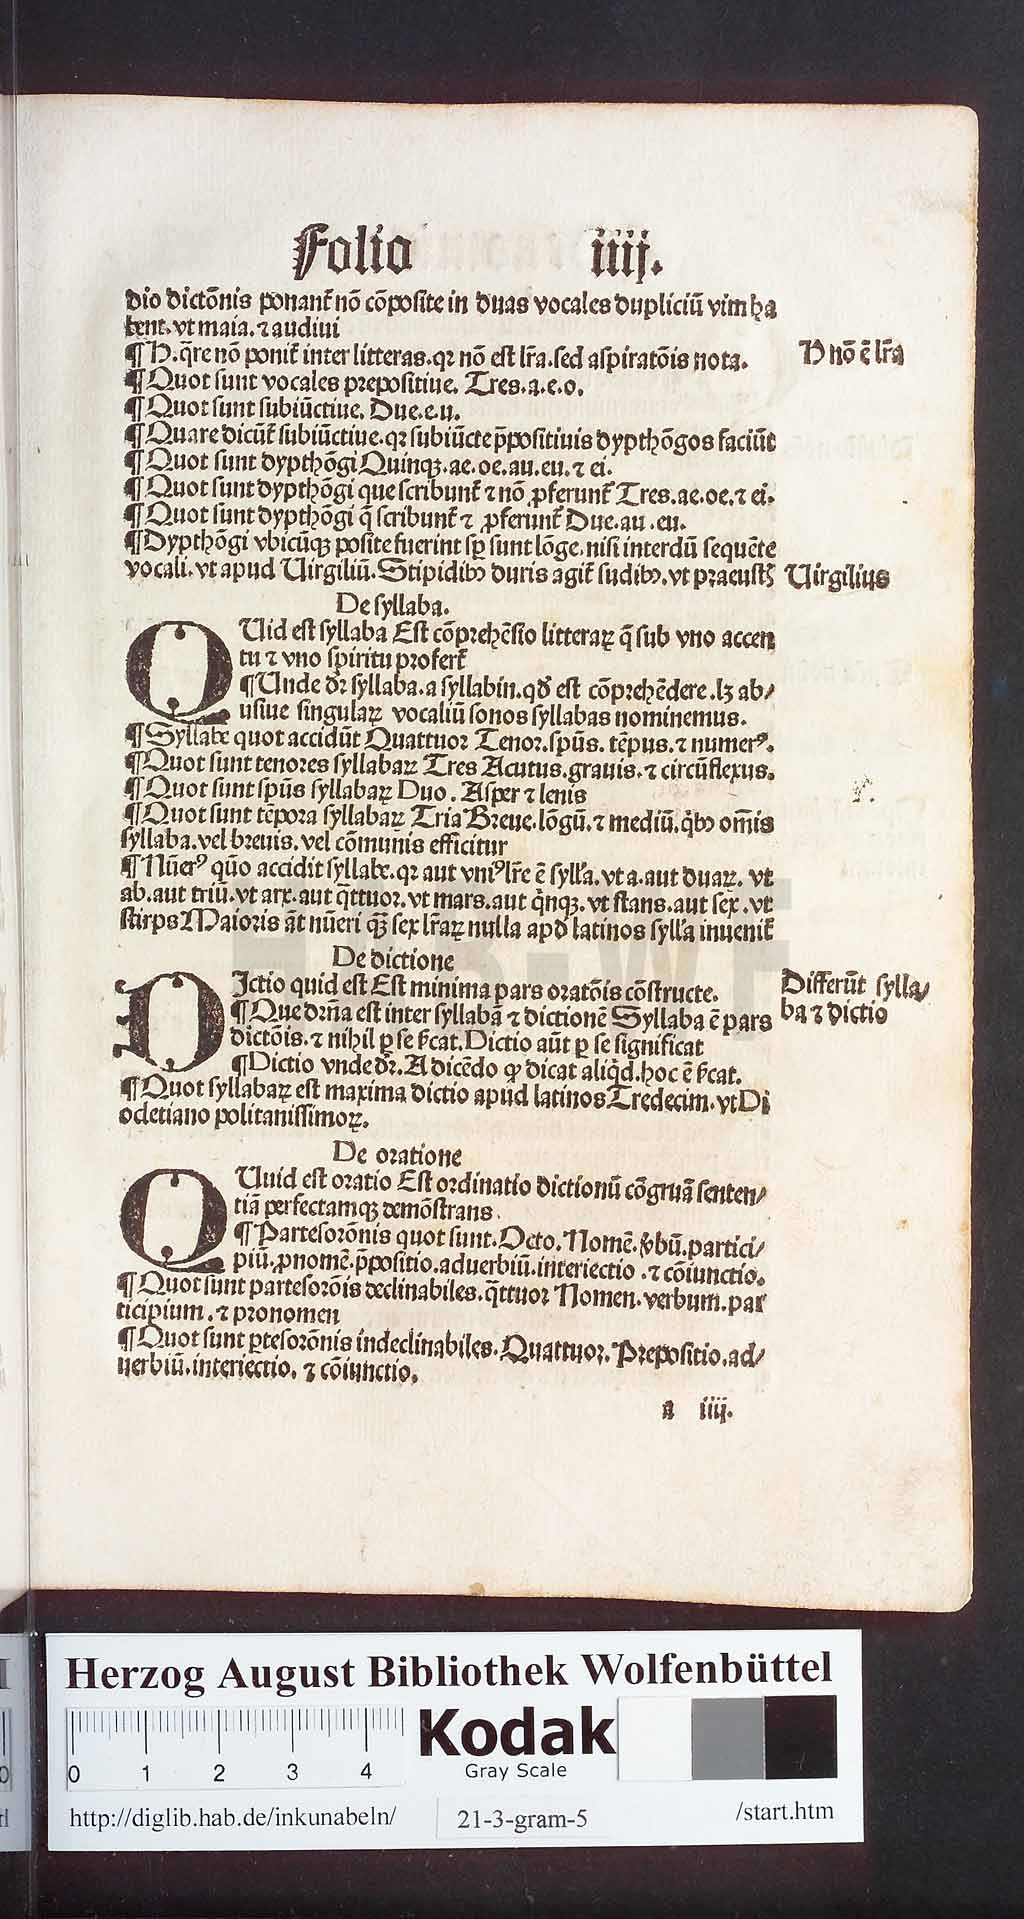 Folio iiij.
dio dictõnis ponant᷑ nõ cõposite in duas vocales dupliciũ vim ha
bent. vt maia. ⁊ audiui
¶ H. q̃re nõ ponit᷑ inter litteras. qꝛ nõ est lr̃a. sed aspiratõis nota.
H nõ ẽ lr̃a
¶ Quot sunt vocales prepositiue. Tres. a. e. o.
¶ Quot sunt subiũctiue. Due. e. u.
¶ Quare dicũt᷑ subiũctiue. qꝛ subiũcte p̃positiuis dypthõgos faciũt
¶ Quot sunt dypthõgi Quinqꝫ. ae. oe. au. eu. ⁊ ei.
¶ Quot sunt dypthõgi que scribunt᷑ ⁊ nõ ꝓferunt᷑ Tres. ae. oe. ⁊ ei.
¶ Quot sunt dypthõgi q̃ scribunt᷑ ⁊ ꝓferunt᷑ Due. au . eu.
¶ Dypthõgi vbicũqꝫ posite fuerint sꝑ sunt lõge. nisi interdũ sequẽte
vocali. vt apud Uirgiliũ. Stipidibꝰ duris agit᷑ sudibꝰ. vt praeustꝭ
Uirgilius
De syllaba.
QUid est syllaba Est cõprehẽsio litteraꝝ q̃ sub vno accen
tu ⁊ vno spiritu profert᷑
¶ Unde dr̃ syllaba. a syllabin. qđ est cõprehẽdere. lꝫ ab/
usiue singulaꝝ vocaliũ sonos syllabas nominemus.
¶ Syllabe quot accidũt Quattuor Tenor. spũs. tẽpus. ⁊ numerꝰ.
¶ Quot sunt tenores syllabaꝝ Tres Acutus. grauis. ⁊ circũflexus.
¶ Quot sunt spũs syllabaꝝ Duo. Asper ⁊ lenis
¶ Quot sunt tẽpora syllabaꝝ Tria Breue. lõgũ. ⁊ mediũ. q̃bꝰ om̃is
syllaba. vel breuis. vel cõmunis efficitur
¶ Nũerꝰ quõ accidit syllabe. qꝛ aut vniꝰ lr̃e ẽ sylla. vt a. aut duaꝝ. vt
ab. aut triũ. vt arx. aut q̃ttuor. vt mars. aut q̃nqꝫ. vt stans. aut sex. vt
stirps Maioris ãt nũeri qꝫ̃ sex lr̃aꝝ nulla apđ latinos sylla inuenit᷑
De dictione
DIctio quid est Est minima pars oratõis cõstructe.
¶ Que dr̃na est inter syllabã ⁊ dictionẽ Syllaba ẽ pars
Differũt sylla/
ba ⁊ dictio
dictõis. ⁊ nihil ꝑ se s̃cat. Dictio aũt ꝑ se significat
¶ Dictio vnde dr̃. A dicẽdo ꝙ dicat aliq̃d. hoc ẽ s̃cat.
¶ Quot syllabaꝝ est maxima dictio apud latinos Tredecim. vt Di
ocletiano politanissimoꝝ.
De oratione
QUuid est oratio Est ordinatio dictionũ cõgruã senten/
tiã perfectamqꝫ demõstrans.
¶ Partesorõnis quot sunt. Octo. Nomẽ. ꝟbũ. partici/
piũ. ꝓnomẽ. p̃positio. aduerbiũ. interiectio . ⁊ cõiunctio.
¶ Quot sunt partesorõis declinabiles. q̃ttuor Nomen. verbum. par
ticipium. ⁊ pronomen
¶ Quot sunt ꝑtesorõnis indeclinabiles. Quattuor. Prepositio. ad/
uerbiũ. interiectio. ⁊ cõiunctio.
a iiij.
HAB-WF
Herzog August Bibliothek Wolfenbüttel
0 1 2 3 4
Kodak
Gray Scale
http://diglib.hab.de/inkunabeln/
21-3-gram-5
/start.htm